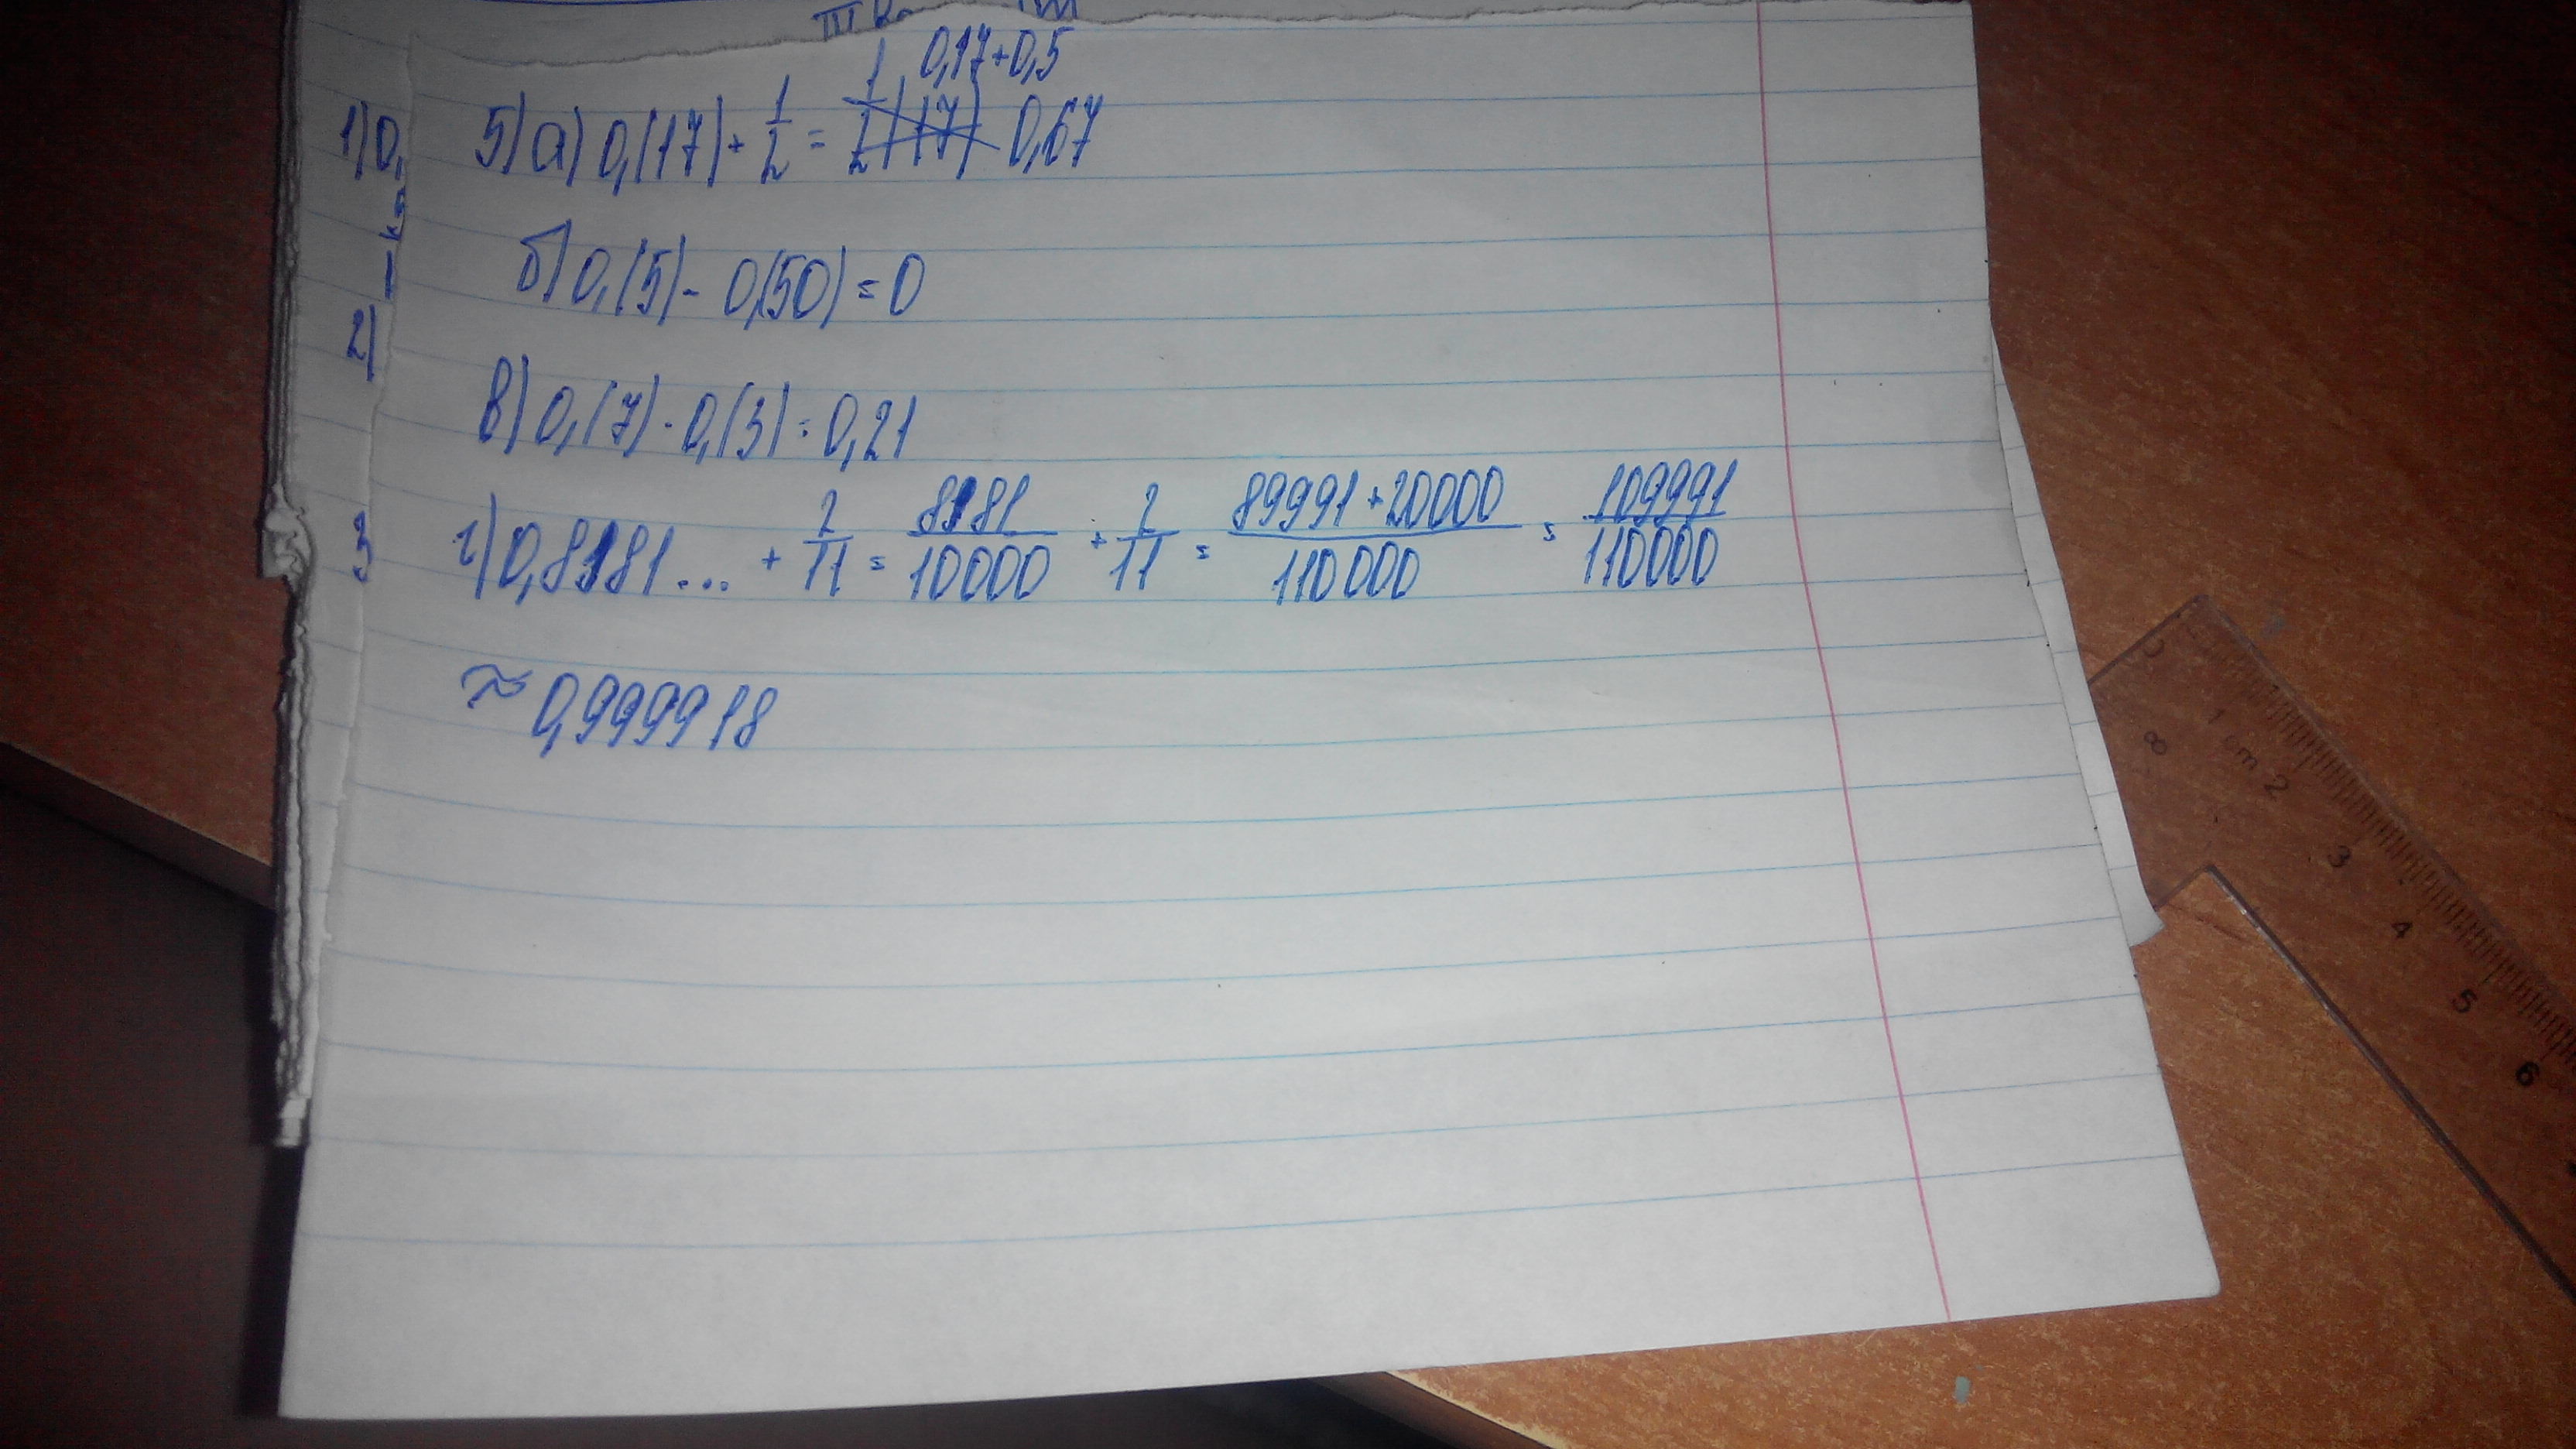 0,17+0,5
5) а) 0,(17) + 1/2 = 0,67
б) 0,(5) - 0,(50) = 0
в) 0,(7) · 0,(3) = 0,21
г) 0,8181... + 2/11 = 8181/10000 + 2/11 = 89991+20000/110000 = 109991/110000
≈ 0,999918
1) 0,
2)
3
1 cm 2 3 4 5 6
8